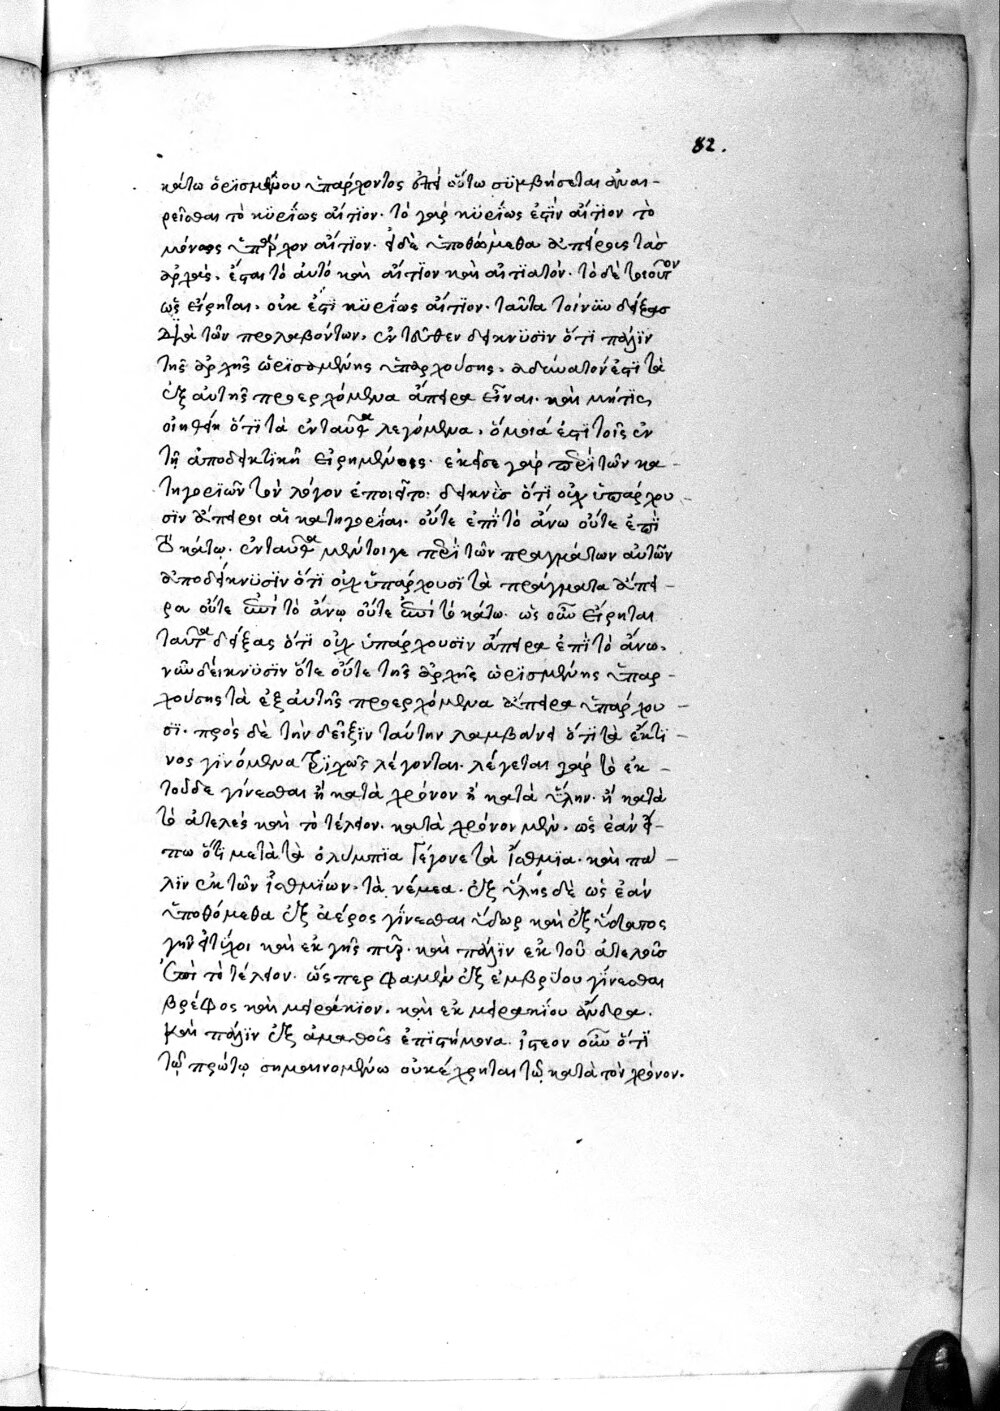 82.
κάτω ὁρισμένου ὑπάρχοντος ἐπεὶ οὕτω συμβήσεται ἀναι-
ρεῖσθαι τὸ κϋρΐως αἴτϊον. τὸ γὰρ κϋρΐως ἐστὶν αἴτϊον τὸ
μόνως ὑπάρχον αἴτϊον. εἰ δὲ ὑποθώμεθα ἀπείρους τὰσ
ἀρχάς, ἔσται τὸ αὐτὸ καὶ αἴτϊον καὶ αἰτϊατόν. τὸ δὲ τοιοῦτον
ὡς εἴρηται, οὐκ ἐστὶ κϋρΐως αἴτϊον. ταῦτα τοίνυν δείξασ
διὰ τῶν προλαβόντων, ἐντεῦθεν δείκνϋσϊν ὅτϊ πάλϊν
τῆς ἀρχῆς ὡρϊσμένης ὑπαρχούσης, ἀδύνατόν ἐστϊ τὰ
ἐξ αὐτῆς προερχόμενα ἄπειρα εἶναι. καὶ μήτϊς
οἰηθείη ὅτϊ τὰ ἐνταῦθα λεγόμενα, ὅμοιά ἐστϊ τοῖς ἐν
τῇ ἀποδεικτικῇ εἰρημένοις. ἐκεῖσε γὰρ περὶ τῶν κα-
τηγορϊῶν τὸν λόγον ἐποιεῖτο. δεικνὺς ὅτϊ οὐχ ὑπάρχου-
σϊν ἄπειροι αἱ κατηγορΐαι. οὔτε ἐπὶ τὸ ἄνω οὔτε ἐπὶ
τὸ κάτω. ἐνταῦθα μέντοιγε περὶ τῶν πραγμάτων αὐτῶν
ἀποδείκνϋσϊν ὅτϊ οὐχ ὑπάρχουσϊ τὰ πράγματα ἄπει-
ρα οὔτε ἐπὶ τὸ ἄνω οὔτε ἐπὶ τὸ κάτω. ὡς οὖν εἴρηται
ταῦτα δείξας ὅτϊ οὐχ ὑπάρχουσϊν ἄπειρα ἐπὶ τὸ ἄνω,
νῦν δείκνϋσϊν ὅτε οὔτε τῆς ἀρχῆς ὡρϊσμένης ὑπαρ-
χούσης τὰ ἐξ αὐτῆς προερχόμενα ἄπειρα ὑπάρχου-
σϊ. πρὸς δὲ τὴν δεῖξϊν ταύτην λαμβάνει ὅτϊ τὰ ἔκ τϊ-
νος γϊνόμενα τρϊχῶς λέγονται. λέγεται γὰρ τὸ ἐκ-
τοῦδε γίνεσθαι ἢ κατὰ χρόνον ἢ κατὰ ὕλην. ἢ κατὰ
τὸ ἀτελὲς καὶ τὸ τέλειον. κατὰ χρόνον μέν, ὡς ἐὰν εἴ-
πω ὅτϊ μετὰ τὰ ὀλύμπϊα γέγονε τὰ ἴσθμϊα. καὶ πά-
λϊν ἐκ τῶν ἰσθμΐων, τὰ νέμεα. ἐξ ὕλης δὲ ὡς ἐὰν
ὑποθόμεθα ἐξ ἀέρος γίνεσθαι ὕδωρ καὶ ἐξ ὕδατος
γῆν εἰ τύχοι καὶ ἐκ γῆς πῦρ. καὶ πάλϊν ἐκ τοῦ ἀτελοῦς
ἐπὶ τὸ τέλειον. ὥς περ φαμὲν ἐξ ἐμβρύου γίνεσθαι
βρέφος καὶ μειράκϊον, καὶ ἐκ μειρακΐου ἄνδρα.
καὶ πάλϊν ἐξ ἀμαθοῦς ἐπιστήμονα. ἰστέον οὖν ὅτϊ
τῷ πρώτῳ σημαινομένω οὐ κέχρηται τῷ κατὰ τὸν χρόνον.